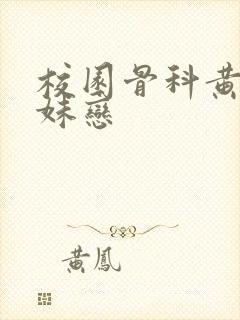 校園骨科黃
妹戀
黃鳳